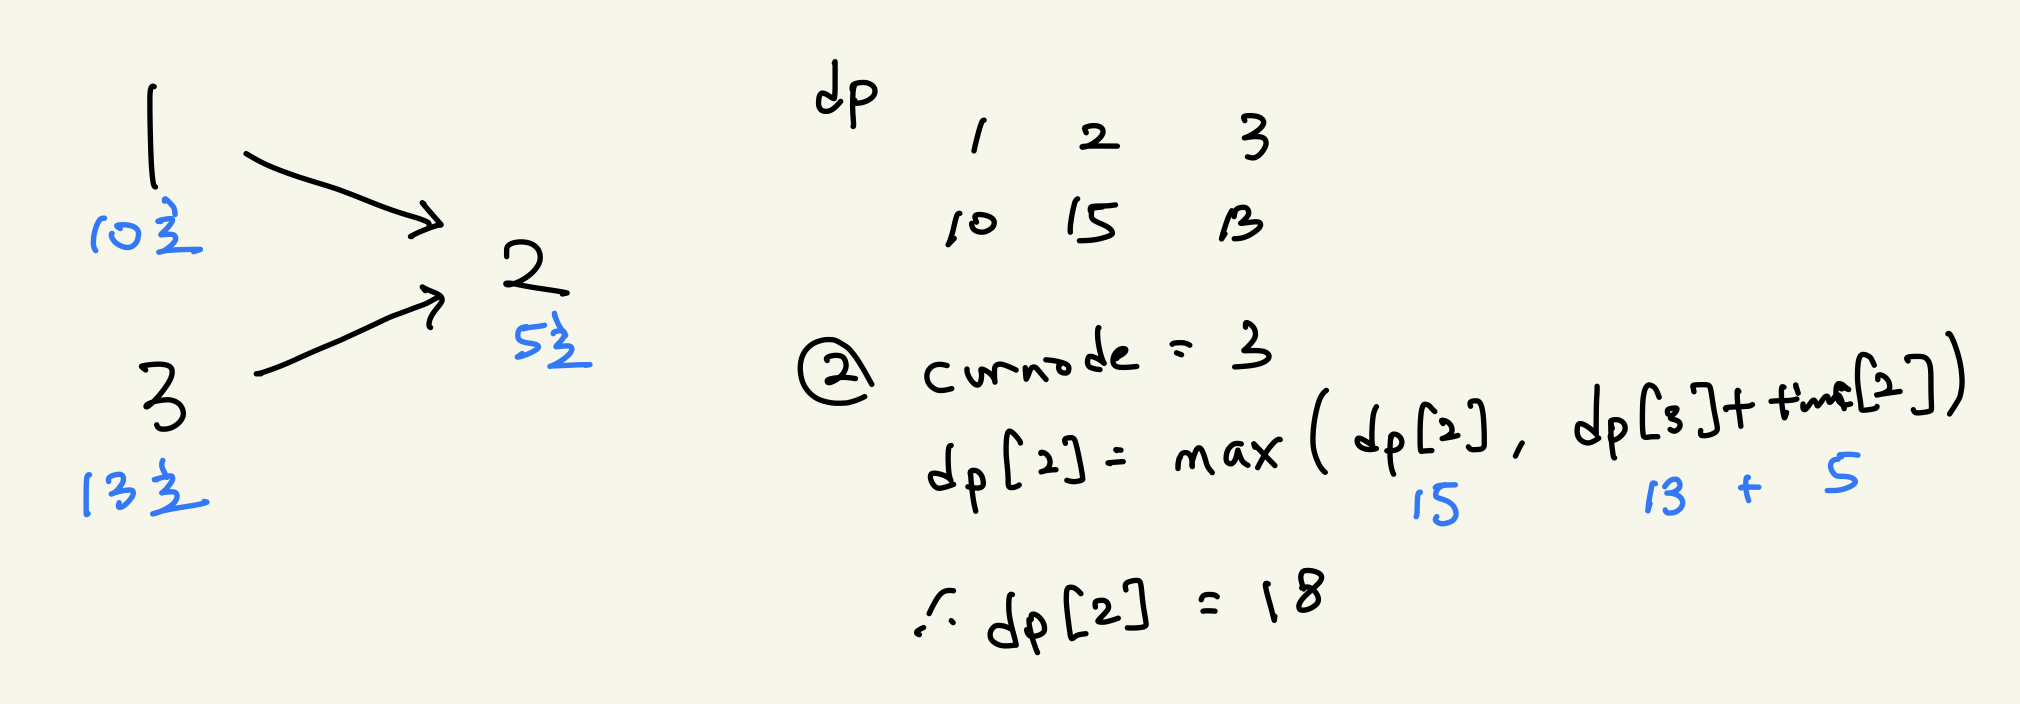 1
10초
3
13초
2
5초
dp
1 2 3
10 15 13
② curnode = 3
dp[2] = max ( dp[2], dp[3] + time[2] )
15 13 + 5
∴ dp[2] = 18